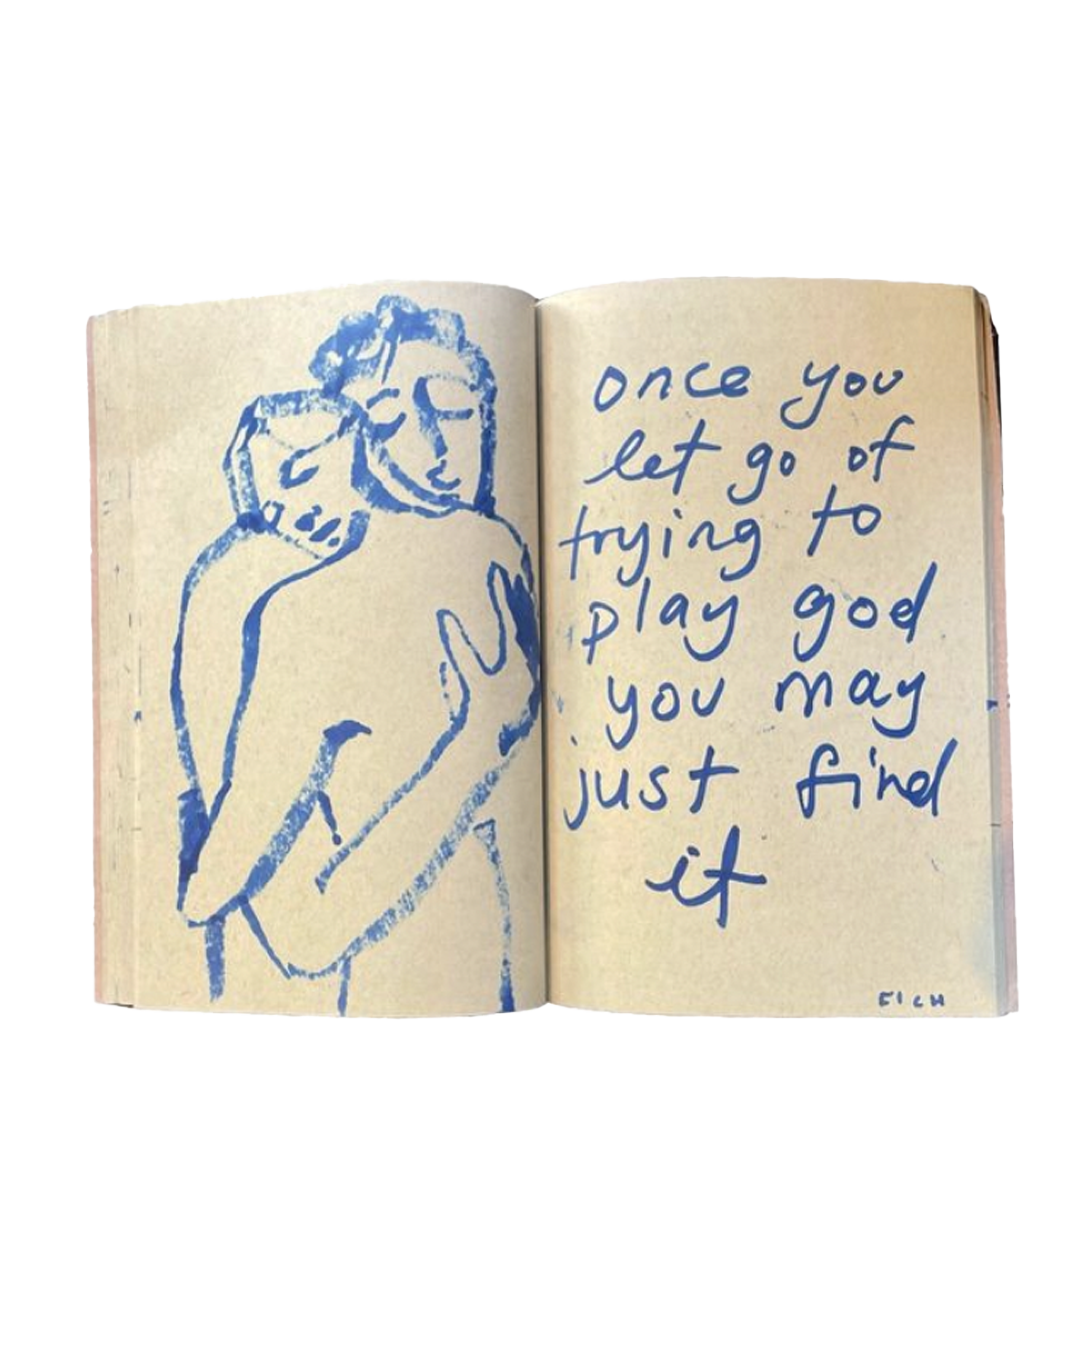 once you
let go of
trying to
play god
you may
just find
it
EICH